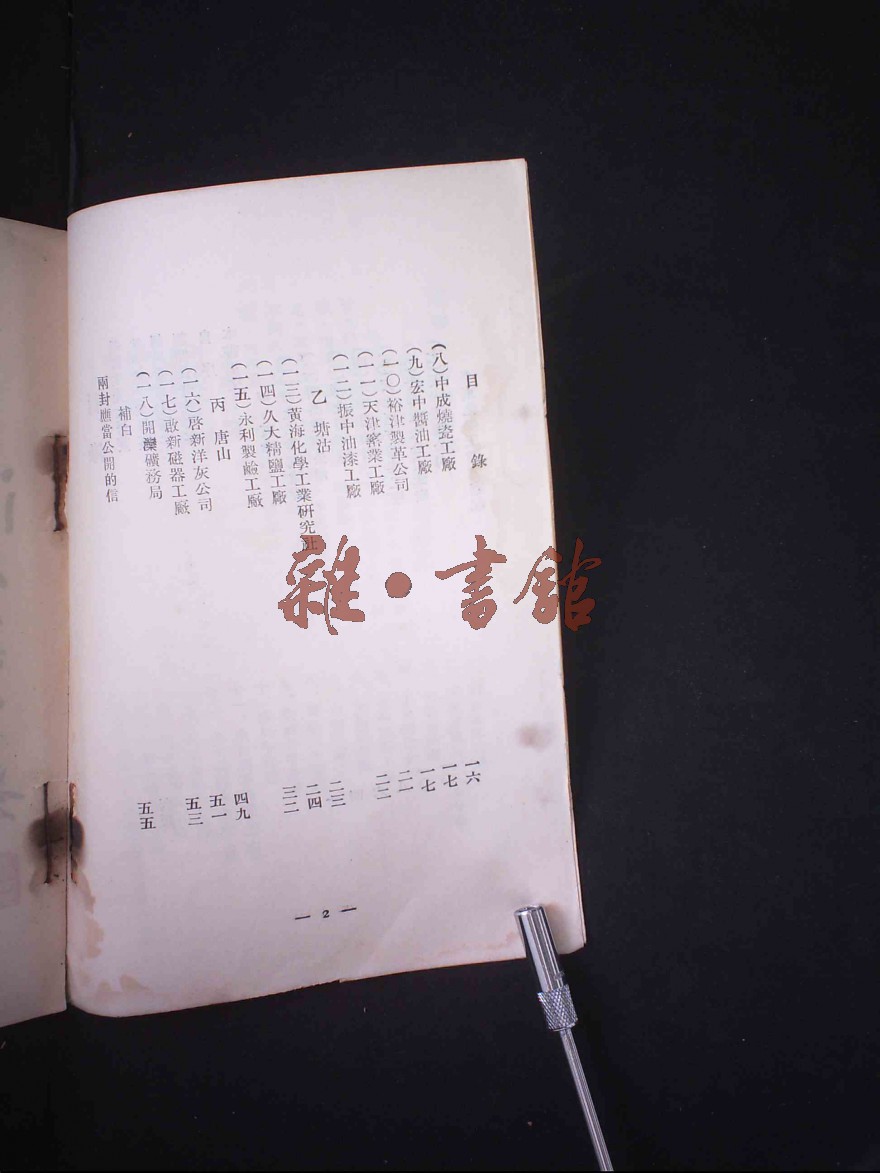 目錄
(八)中成燒瓷工廠 一六
(九)宏中醬油工廠 一七
(一〇)裕津製革公司 一七
(一一)天津窰業工廠 二一
(一二)振中油漆工廠 二二
乙 塘沽
(一三)黃海化學工業研究社 二三
(一四)久大精鹽工廠 二四
(一五)永利製鹼工廠 三二
丙 唐山
(一六)啓新洋灰公司 四九
(一七)啟新磁器工廠 五一
(一八)開灤礦務局 五三
補白
兩封應當公開的信 五五
— 2 —
雜•書館